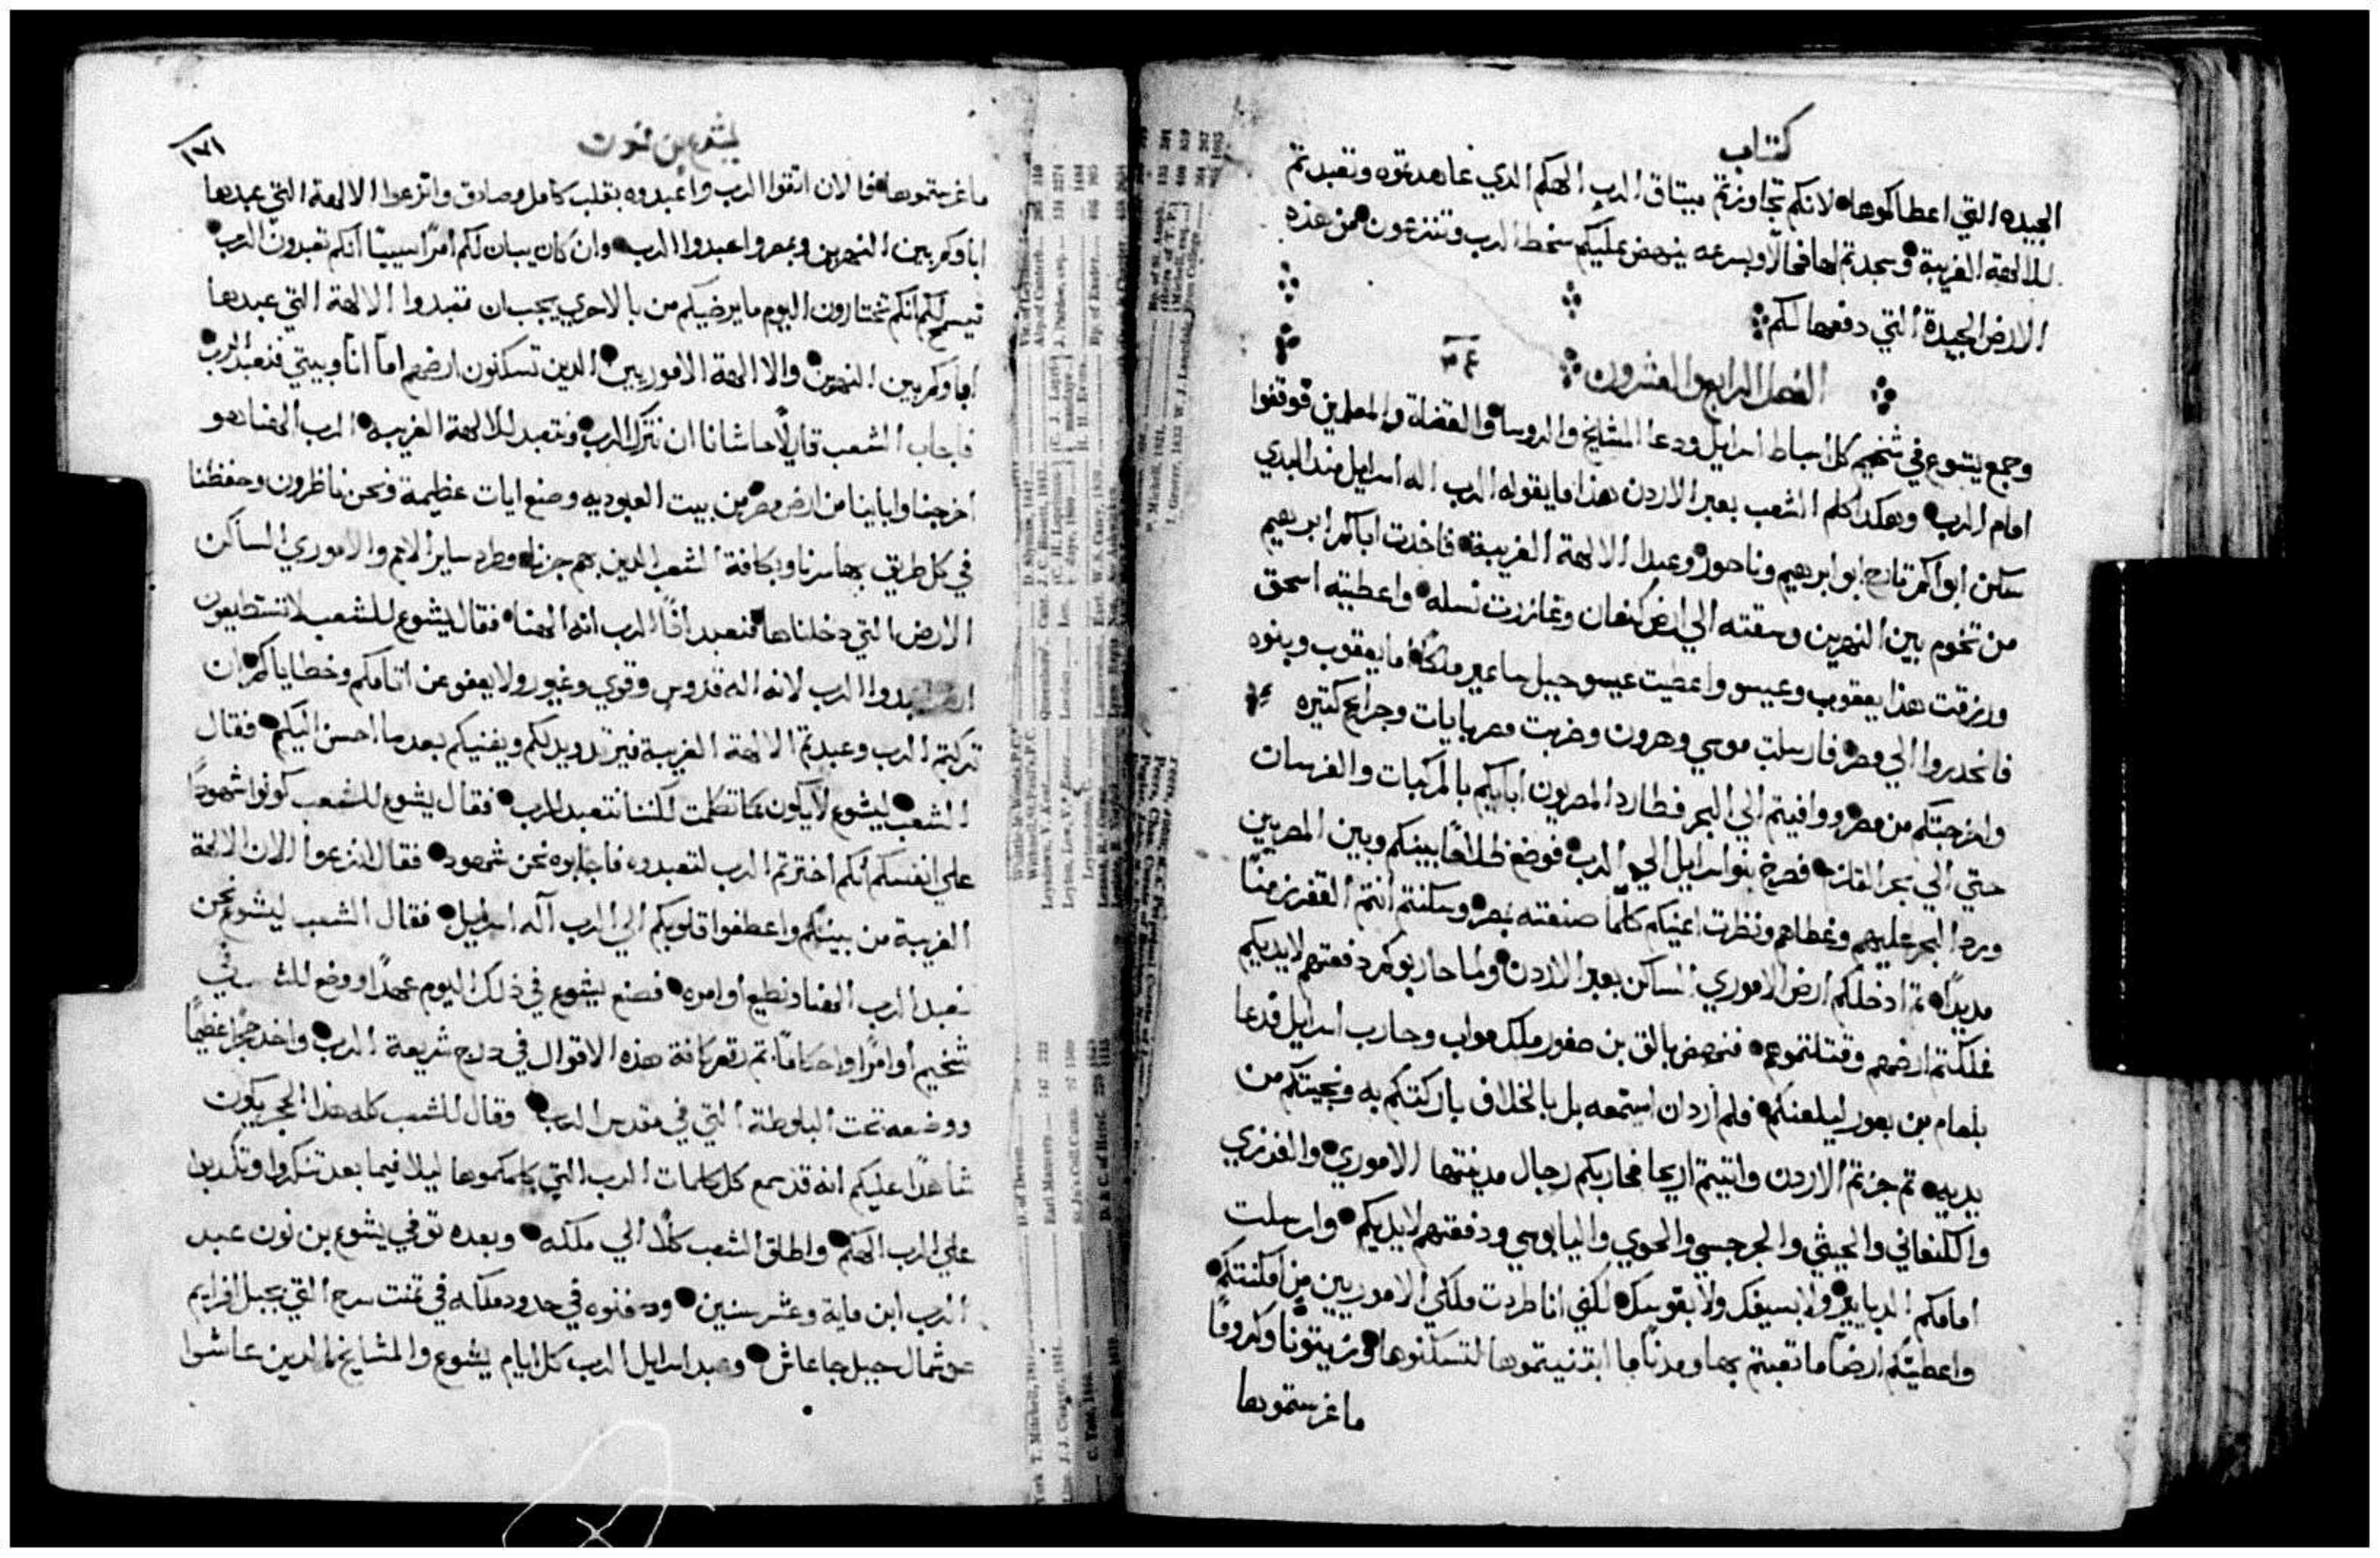 كتاب
الجيده التي اعطاكموها لانكم تجاوزتم ميتاق الرب الهكم الدي عاهدتموه وتعبدتم
للالهة الغريبة وسجدتم لها فحالًا وبسرعه ينهض عليكم سخط الرب وتنتزعون من هذه
الارض الجيدة التي دفعها لكم
الفصل الرابع والعشرون ٢٤
وجمع يشوع في شخيم كل اسباط اسرايل ودعا المشايخ والروسا والقضاة والمعلمين فوقفوا
امام الرب وهكدا كلم الشعب بعبر الاردن هذا ما يقوله الرب اله اسرايل مند البدي
سكن ابواكم تارح ابو ابرهيم وناحور وعبدا الالهة الغريبة فاخدت اباكم ابرهيم
من تخوم بين النهرين وسقته الي ارض كنعان وغازرت نسله واعطيته اسحق
ورزقت هذا يعقوب وعيسو واعطيت عيسو جبل ساعير ملكًا اما يعقوب وبنوه
فانحدروا الي مصر فارسلت موسي وهرون وضربت مصر بايات وجرايح كتيره
واخرجتكم من مصر ووافيتم الي البحر فطارد المصريون ابايكم بالمركبات والفرسان
حتي الي بحر القلزم فصرخ بنو اسرايل الي الرب فوضع ظلامًا بينكم وبين المصريين
ورد البحر عليهم وغطاهم ونظرت اعينكم كلما صنعته بمصر وسكنتم انتم القفر زمنًا
مديدًا تم ادخلكم ارض الاموري الساكن بعبر الاردن ولما حاربوكم دفعتهم لايديكم
فملكتم ارضهم وقتلتموهم فنهض بالق بن صفور ملك مواب وحارب اسرايل فدعا
بلعام بن بعور ليلعنكم فلم ارد ان استمعه بل بالخلاف باركتكم به ونجيتكم من
يديه تم جزتم الاردن واتيتم اريحا فحاربكم رجال مدينتها الاموري والفرزي
والكنعاني والحيثي والجرجسي والحوي واليابوسي ودفعتهم لايديكم وارسلت
امامكم الدبابير ولا بسيفك ولا بقوسك لكني انا طردت ملكي الاموريين من امكنتكم
واعطيتكم ارضًا ما تعبتم بها ومدنًا ما ابتنيتموها لتسكنوها وزيتونًا وكرومًا
ما غرستموها
يشوع بن نون
١٧١
ما غرستموها فالان اتقوا الرب واعبدوه بقلب كامل وصادق وانزعوا الالهة التي عبدها
اباوكم بين النهرين وبمصر واعبدوا الرب وان كان يبان لكم امرًا سييًا انكم تعبدون الرب
فيسمح لكم انكم تختارون اليوم ما يرضيكم من بالاحري يجب ان تعبدوا الالهة التي عبدها
اباوكم بين النهرين والا الهة الاموريين الدين تسكنون ارضهم اما انا وبيتي فنعبد الرب
فاجاب الشعب قايلًا حاشانا ان نترك الرب ونتعبد للالهة الغريبه الرب الهنا هو
اخرجنا واباينا من ارض مصر من بيت العبوديه وصنع ايات عظيمة ونحن ناظرون وحفظنا
في كل طريق بها سرنا وبكافة الشعب الدين بهم جزنا وطرد ساير الامم والاموري الساكن
الارض التي دخلناها فنعبد اذًا الرب انه الهنا فقال يشوع للشعب لا تستطيعون
تعبدوا الرب لانه اله قدوس وقوي وغيور ولا يعفو عن اتامكم وخطاياكم ان
تركتم الرب وعبدتم الالهة الغريبة فيرتد ويدلكم ويفنيكم بعد ما احسن اليكم فقال
الشعب ليشوع لا يكون كما تكلمت لكننا نتعبد للرب فقال يشوع للشعب كونوا شهودًا
علي انفسكم انكم اخترتم الرب لتعبدوه فاجابوه نحن شهود فقال انزعوا الان الالهة
الغريبة من بينكم واعطفوا قلوبكم الي الرب اله اسرايل فقال الشعب ليشوع نحن
نعبد الرب الهنا ونطيع اوامره فصنع يشوع في ذلك اليوم عهدًا ووضع للشعب في
شخيم اوامرًا واحكامًا تم رقم كافة هذه الاقوال في درج شريعة الرب واخد حجرًا عظيمًا
ووضعه تحت البلوطة التي في مقدس الرب وقال للشعب كله هذا الحجر يكون
شاهدًا عليكم انه قد سمع كل كلمات الرب التي كلمكموها ليلا فيما بعد تنكروا وتكدبوا
علي الرب الهكم واطلق الشعب كلًا الي ملكه وبعده توفي يشوع بن نون عبد
الرب ابن ماية وعشر سنين ودفنوه في حدود ملكه في تمنت سرح التي بجبل افرايم
نحو شمال جبل جاعاش وعبد اسرايل الرب كل ايام يشوع والمشايخ الدين عاشوا